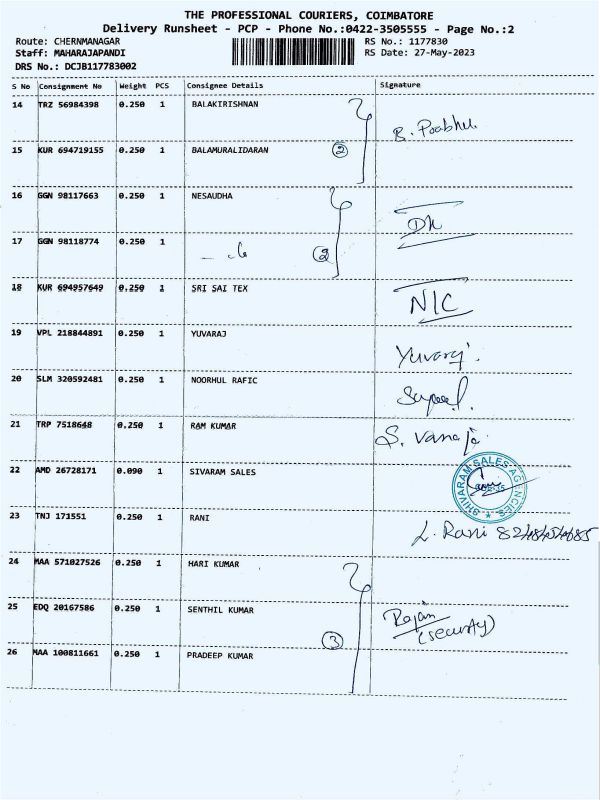 THE PROFESSIONAL COURIERS, COIMBATORE
Delivery Runsheet - PCP - Phone No.:0422-3505555 - Page No.:2
Route: CHERNMANAGAR RS No.: 1177830
Staff: MAHARAJAPANDI RS Date: 27-May-2023
DRS No.: DCJB117783002
S No Consignment No Weight PCS Consignee Details Signature
14 TRZ 56984398 0.250 1 BALAKIRISHNAN
B. Prabhu
15 KUR 694719155 0.250 1 BALAMURALIDARAN 2
16 GGN 98117663 0.250 1 NESAUDHA
17 GGN 98118774 0.250 1
2
18 KUR 694957649 0.250 1 SRI SAI TEX N/C
19 VPL 218844891 0.250 1 YUVARAJ
Yuvaraj.
20 SLM 320592481 0.250 1 NOORHUL RAFIC
21 TRP 7518648 0.250 1 RAM KUMAR S. Vanaja
22 AMD 26728171 0.090 1 SIVARAM SALES SHIVARAM SALES AGENCIES
23 TNJ 171551 0.250 1 RANI
L. Rani
24 MAA 571027526 0.250 1 HARI KUMAR
25 EDQ 20167586 0.250 1 SENTHIL KUMAR Rajan
(security)
3
26 MAA 100811661 0.250 1 PRADEEP KUMAR